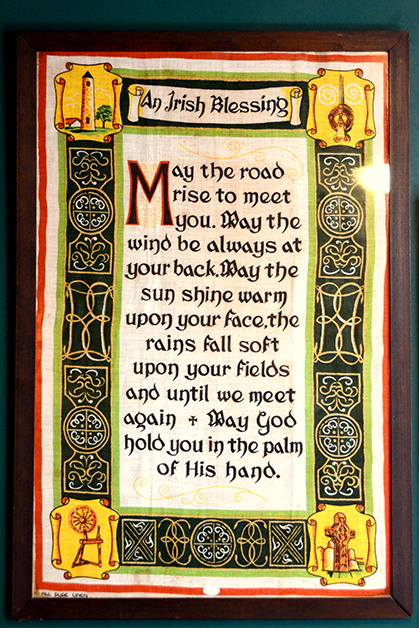 An Irish Blessing
May the road
rise to meet
you. May the
wind be always at
your back. May the
sun shine warm
upon your face, the
rains fall soft
upon your fields
and until we meet
again + May God
hold you in the palm
of His hand.
ALL PURE LINEN